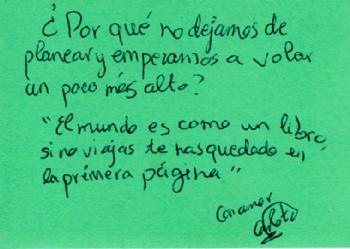 ¿Por qué no dejamos de
planear y empezamos a volar
un poco más alto?
"El mundo es como un libro,
si no viajas te has quedado en
la primera página"
Con amor